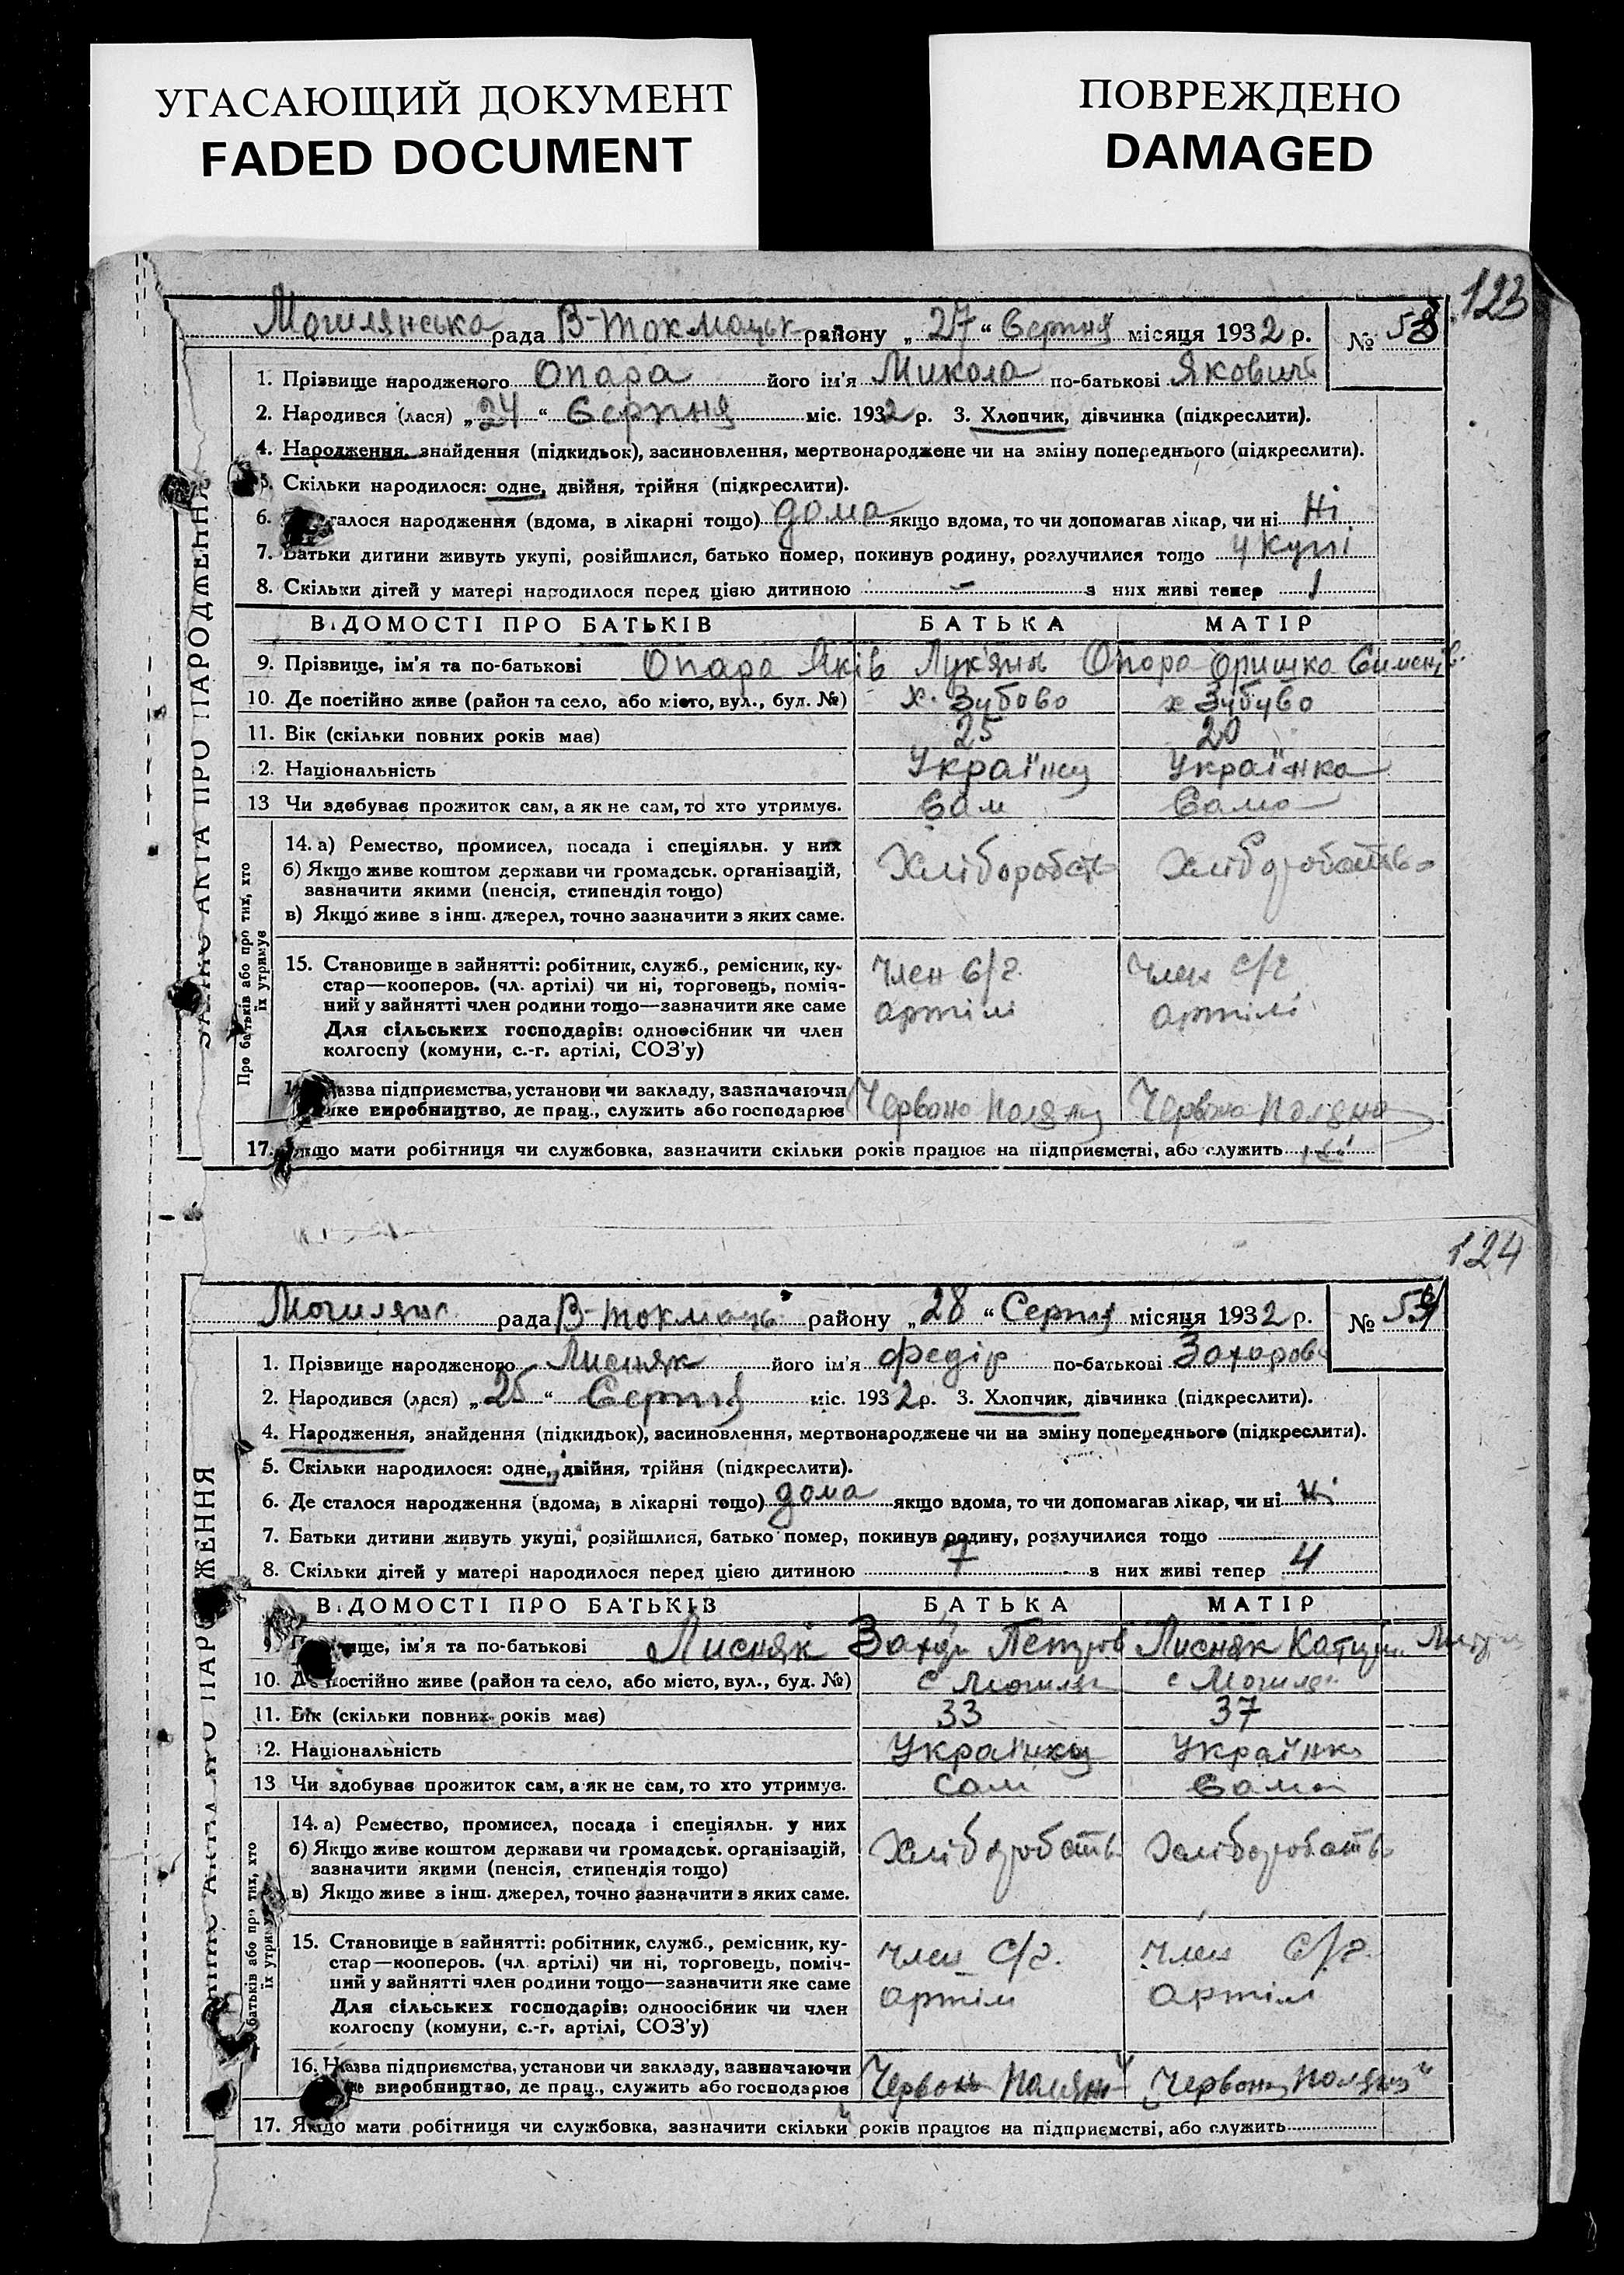 УГАСАЮЩИЙ ДОКУМЕНТ
FADED DOCUMENT
ПОВРЕЖДЕНО
DAMAGED
123
Могилянська рада В-Токмацьк району „27“ Серпня місяця 1932 р. № 58
1. Прізвище народженого Опара його ім'я Микола по-батькові Якович
2. Народився (лася) „24“ Серпня міс. 1932 р. 3. Хлопчик, дівчинка (підкреслити).
4. Народження, знайдення (підкидьок), засиновлення, мертвонароджене чи на зміну попереднього (підкреслити).
5. Скільки народилося: одне, двійня, трійня (підкреслити).
6. талося народження (вдома, в лікарні тощо) дома якщо вдома, то чи допомагав лікар, чи ні Ні
7. Батьки дитини живуть укупі, розійшлися, батько помер, покинув родину, розлучилися тощо укупі
8. Скільки дітей у матері народилося перед цією дитиною – з них живі тепер 1
ВІДОМОСТІ ПРО БАТЬКІВ БАТЬКА МАТІР
9. Прізвище, ім'я та по-батькові Опара Яків Лук'янов Опара Оришка Семенів
10. Де постійно живе (район та село, або місто, вул., буд. №) х. Зубово х Зубово
11. Вік (скільки повних років має) 25 20
12. Національність Українец Українка
13 Чи здобуває прожиток сам, а як не сам, то хто утримує. Сам Сама
14. а) Ремество, промисел, посада і спеціяльн. у них
б) Якщо живе коштом держави чи громадськ. організацій,
зазначити якими (пенсія, стипендія тощо)
в) Якщо живе з інш. джерел, точно зазначити з яких саме.
Хліборобств Хліборобство
15. Становище в зайнятті: робітник, служб., ремісник, ку-
стар—кооперов. (чл. артілі) чи ні, торговець, поміч-
ний у зайнятті член родини тощо—зазначити яке саме
Для сільських господарів: одноосібник чи член
колгоспу (комуни, с.-г. артілі, СОЗ'у)
Член С/г. Член С/г
артілі артілі
азва підприємства, установи чи закладу, зазначаючи
яке виробництво, де прац., служить або господарює Червона Поляна Червона Поляна
17. Якщо мати робітниця чи службовка, зазначити скільки років працює на підприємстві, або служить
Про батьків або про тих, хто
їх утримує
ЗАПИС АКТА ПРО НАРОДЖЕННЯ
124
Могилянс рада В-Токмацьк району „28“ Серпня місяця 1932 р. №
1. Прізвище народженого Лисняк його ім'я Федір по-батькові Захоров
2. Народився (лася) „25“ Серпня міс. 1932 р. 3. Хлопчик, дівчинка (підкреслити).
4. Народження, знайдення (підкидьок), засиновлення, мертвонароджене чи на зміну попереднього (підкреслити).
5. Скільки народилося: одне, двійня, трійня (підкреслити).
6. Де сталося народження (вдома, в лікарні тощо) дома якщо вдома, то чи допомагав лікар, чи ні Ні
7. Батьки дитини живуть укупі, розійшлися, батько помер, покинув родину, розлучилися тощо
8. Скільки дітей у матері народилося перед цією дитиною 7 з них живі тепер 4
ВІДОМОСТІ ПРО БАТЬКІВ БАТЬКА МАТІР
9. Прізвище, ім'я та по-батькові Лисняк Захар Петров Лисняк Катер.
10. Де постійно живе (район та село, або місто, вул., буд. №) с Могилян с Могиля
11. Вік (скільки повних років має) 33 37
12. Національність Українец Українк
13 Чи здобуває прожиток сам, а як не сам, то хто утримує. Сам Сама
14. а) Ремество, промисел, посада і спеціяльн. у них
б) Якщо живе коштом держави чи громадськ. організацій,
зазначити якими (пенсія, стипендія тощо)
в) Якщо живе з інш. джерел, точно зазначити з яких саме.
Хліборобств Хліборобств
15. Становище в зайнятті: робітник, служб., ремісник, ку-
стар—кооперов. (чл. артілі) чи ні, торговець, поміч-
ний у зайнятті член родини тощо—зазначити яке саме
Для сільських господарів: одноосібник чи член
колгоспу (комуни, с.-г. артілі, СОЗ'у)
Член С/г. Член С/г.
артілі артілі
16. Назва підприємства, установи чи закладу, зазначаючи
яке виробництво, де прац., служить або господарює Червон Полян „Червона Поляна“
17. Якщо мати робітниця чи службовка, зазначити скільки років працює на підприємстві, або служить
батьків або про тих, хто
їх утримує
ЗАПИС АКТА ПРО НАРОДЖЕННЯ